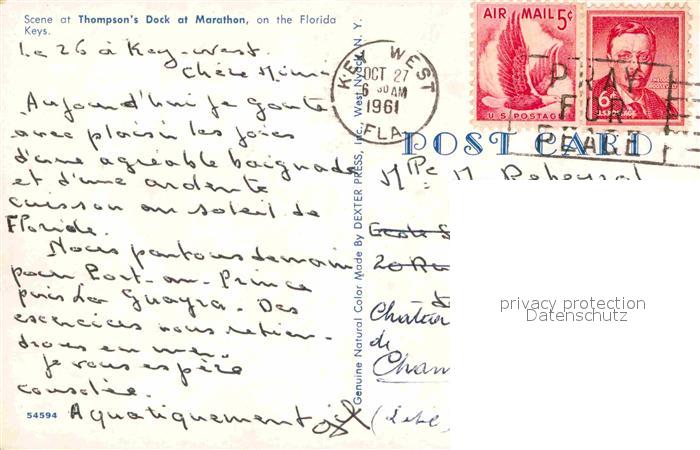 Scene at Thompson's Dock at Marathon, on the Florida
Keys.
Le 26 à Key-West.
Chère Mimi
Aujourd'hui je goûte
avec plaisir les joies
d'une agréable baignade
et d'une ardente
cuisson au soleil de
Floride.
Nous partons demain
pour Port-au-Prince
puis La Guayra. Des
exercices nous retien-
drons en mer.
Je vous espère
consolée.
Aquatiquement
54594
Genuine Natural Color Made By DEXTER PRESS, Inc. West Nyack, N. Y.
KEY WEST
OCT 27
6 30 AM
1961
FLA.
AIR MAIL 5¢
U.S. POSTAGE
6¢
PRAY
FOR
PEACE
POST CARD
Mlle M.
20 Ru
Chateau
de
Cham
privacy protection
Datenschutz